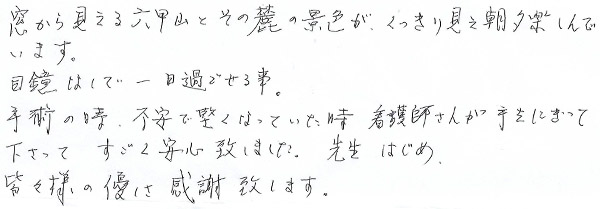 窓から見える六甲山とその麓の景色が、くっきり見え朝夕楽しんで
います。
目鏡なしで一日過ごせる事。
手術の時、不安で堅くなっていた時 看護師さんが手をにぎって
下さって すごく安心致しました。先生はじめ、
皆々様の優しさ感謝致します。